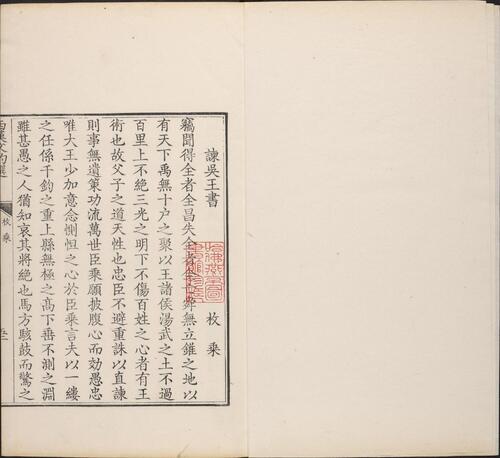 諫吳王書
枚乘
竊聞得全者全昌失全者全亡舜無立錐之地以
有天下禹無十戶之聚以王諸侯湯武之土不過
百里上不絕三光之明下不傷百姓之心者有王
術也故父子之道天性也忠臣不避重誅以直諫
則事無遺策功流萬世臣乘願披腹心而效愚忠
唯大王少加意念惻怛之心於臣乘言夫以一縷
之任係千鈞之重上縣無極之高下垂不測之淵
雖甚愚之人猶知哀其將絕也馬方駭鼓而驚之
枚乘